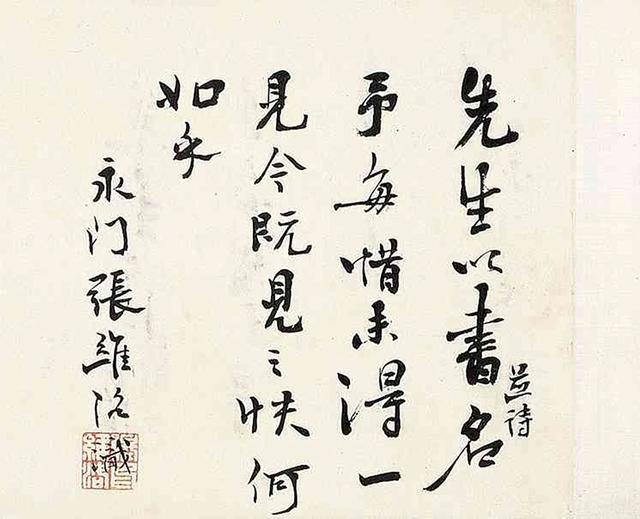 先生以書名
予每惜未得一
見今既見之快何
如乎
永门張維識